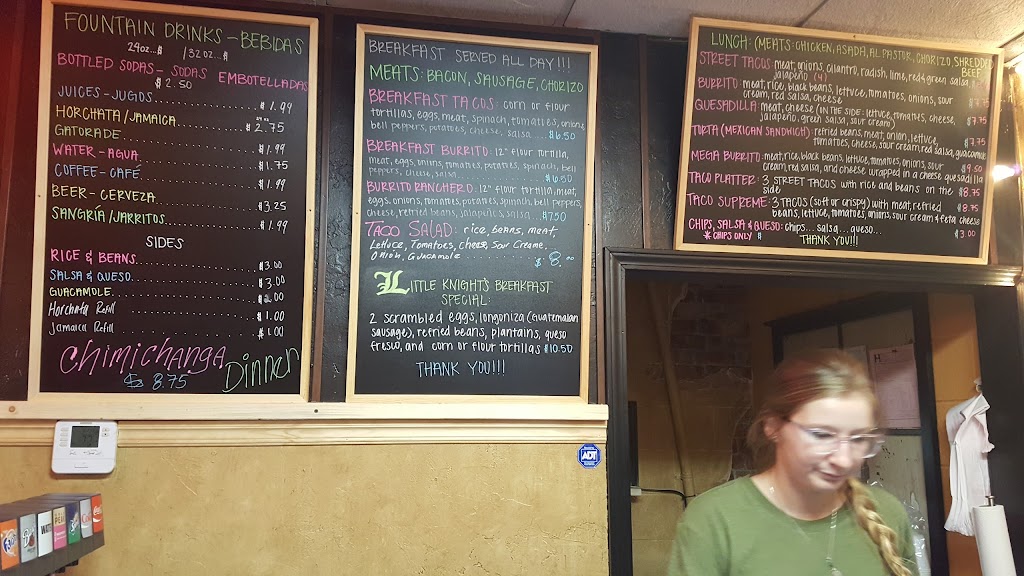 FOUNTAIN DRINKS - BEBIDAS
24oz... /32oz...
BOTTLED SODAS - SODAS EMBOTELLADAS
$2.50
JUICES - JUGOS $1.99
HORCHATA/JAMAICA $2.75
GATORADE $1.99
WATER - AGUA $1.75
COFFEE - CAFÉ $1.99
BEER - CERVEZA $3.25
SANGRIA/JARRITOS $1.99
SIDES
RICE & BEANS $3.00
SALSA & QUESO $3.00
GUACAMOLE $2.00
Horchata Refill $1.00
Jamaica Refill $1.00
Chimichanga Dinner
$ 8.75
BREAKFAST SERVED ALL DAY!!!
MEATS: BACON, SAUSAGE, CHORIZO
BREAKFAST TACOS: corn or flour
tortillas, eggs, meat, spinach, tomatoes, onions,
bell peppers, potatoes, cheese, salsa... $6.50
BREAKFAST BURRITO: 12" flour tortilla,
meat, eggs, onions, tomatoes, potatoes, spinach, bell
peppers, cheese, salsa $6.50
BURRITO RANCHERO: 12" flour tortilla, meat,
eggs, onions, tomatoes, potatoes, spinach, bell peppers,
cheese, refried beans, jalapeños, salsa... $7.50
TACO SALAD: rice, beans, meat,
Lettuce, Tomatoes, cheese, Sour Creame,
Onion, Guacamole $8.00
LITTLE KNIGHT'S BREAKFAST
SPECIAL:
2 scrambled eggs, longoniza (Guatemalan
sausage), refried beans, plantains, queso
fresco, and corn or flour tortillas $10.50
THANK YOU!!!
LUNCH: (MEATS: CHICKEN, ASADA, AL PASTOR, CHORIZO, SHREDDED
BEEF
STREET TACOS: meat, onions, cilantro, radish, lime, red & green salsa,
jalapeño (4)
BURRITO: meat, rice, black beans, lettuce, tomatoes, onions, sour
cream, red salsa, cheese $7.75
QUESADILLA: meat, cheese (ON THE SIDE: lettuce, tomatoes, cheese,
jalapeño, green salsa, sour cream) $7.75
TORTA (MEXICAN SANDWICH): refried beans, meat, onion, lettuce,
tomatoes, cheese, sour cream, red salsa, guacamole $7.75
MEGA BURRITO: meat, rice, black beans, lettuce, tomatoes, onions, sour
cream, red salsa, and cheese wrapped in a cheese quesadilla $9.50
TACO PLATTER: 3 STREET TACOS with rice and beans on the
side $8.75
TACO SUPREME: 3 TACOS (soft or crispy) with meat, refried $8.75
beans, lettuce, tomatoes, onions, sour cream & feta cheese
CHIPS, SALSA & QUESO: chips... salsa... queso... $3.00
* CHIPS ONLY THANK YOU!!!
ADT